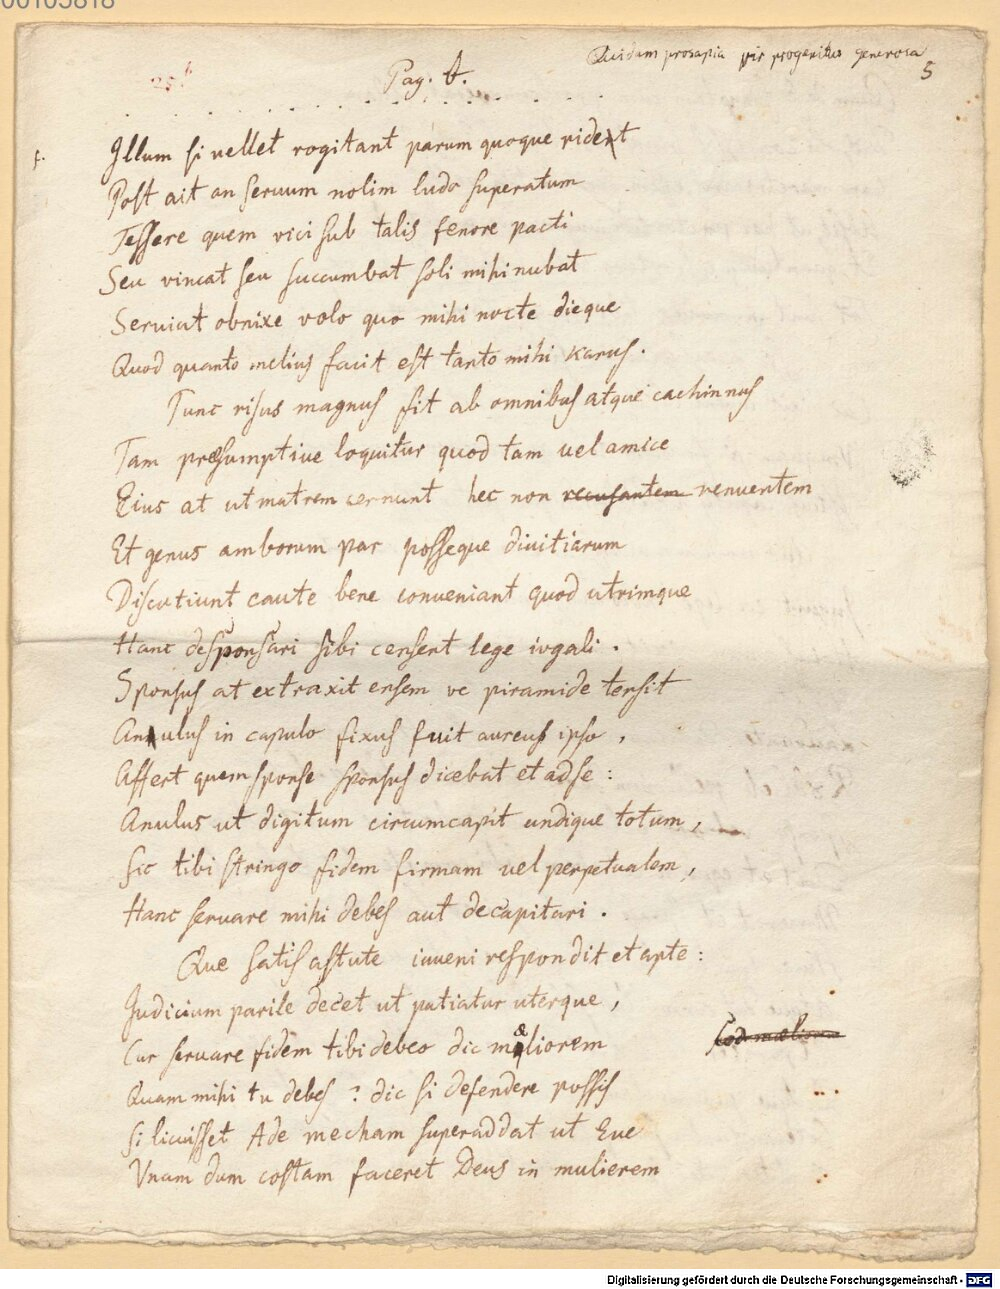 00103818
Quidam prosapia vir progenitus generosa
5
25
Pag. b.
f. Illum si vellet rogitant parum quoque rident
Post ait an servum nolim ludo superatum
Tessere quem vici sub talis fenore pacti
Seu vincat seu succumbat soli mihi nubat
Serviat obnixe volo quo mihi nocte dieque
Quod quanto melius facit est tanto mihi karus.
Tunc risus magnus fit ab omnibus atque cachinnus
Tam præsumptive loquitur quod tam vel amice
Eius at ut matrem cernunt hec non recusantem renuentem
Et genus amborum par posseque divitiarum
Discutiunt caute bene conveniant quod utrimque
Hanc desponsari sibi censent lege iugali.
Sponsus at extraxit ensem ve piramide tersit
Anulus in capulo fixus fuit aureus ipso,
Affert quem sponse sponsus dicebat et ad se:
Anulus ut digitum circumcapit undique totum,
Sic tibi stringo fidem firmam vel perpetualem,
Hanc servare mihi debes aut decapitari.
Que satis astute iuveni respondit et apte:
Judicium parile decet ut patiatur uterque,
Cur servare fidem tibi debeo dic mæliorem
Quam mihi tu debes? dic si defendere possis
Si licuisset Ade mecham superaddat ut Eve
Vnam dum costam faceret Deus in mulierem
Digitalisierung gefördert durch die Deutsche Forschungsgemeinschaft - DFG